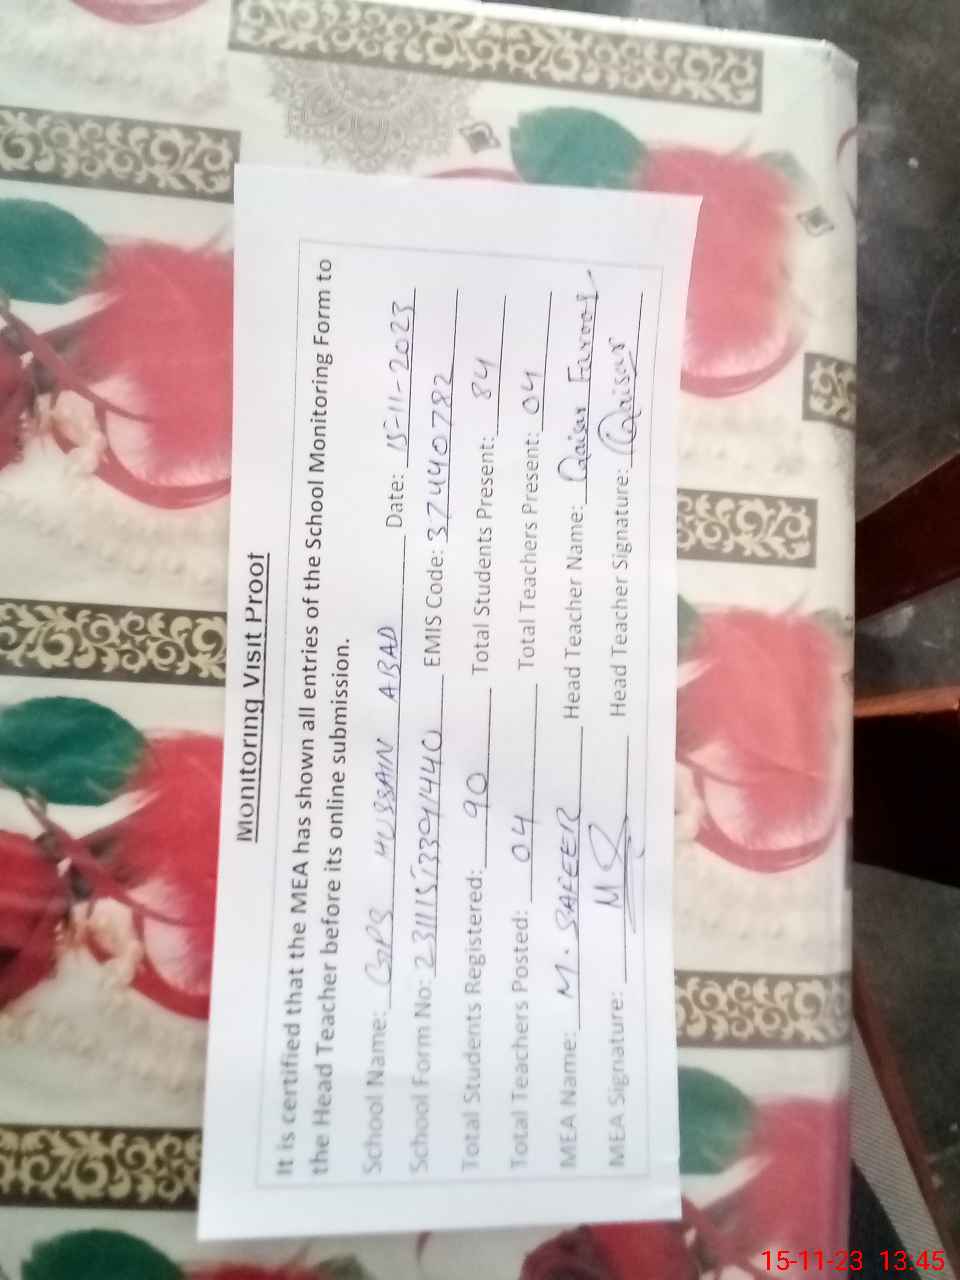 Monitoring Visit Proof
It is certified that the MEA has shown all entries of the School Monitoring Form to
the Head Teacher before its online submission.
School Name: GPS HUSSAIN ABAD Date: 15-11-2023
School Form No: 231115133941440 EMIS Code: 37440782
Total Students Registered: 90 Total Students Present: 84
Total Teachers Posted: 04 Total Teachers Present: 04
MEA Name: M. SAFEER Head Teacher Name: Qaisar Farooq
MEA Signature: MS Head Teacher Signature: Qaisar
15-11-23 13:45